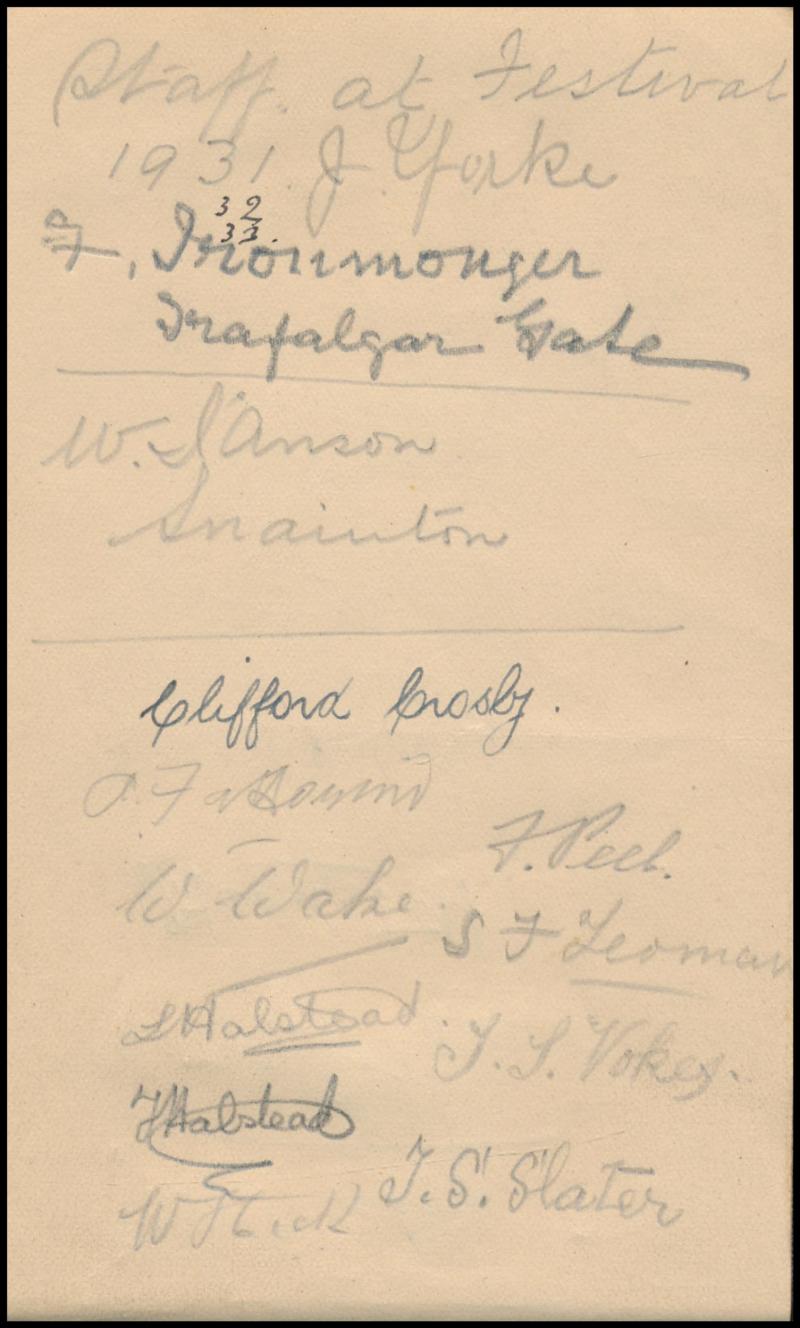 Staff. at Festival
1931. J Yorke
32
33.
F, Ironmonger
Trafalgar Gate
W. I'Anson
Snainton
Clifford Crosby.
W Wake.
F. Peel.
S F Yeoman
L Halstead
T. S. Vokes.
J Halstead
T. S. Slater